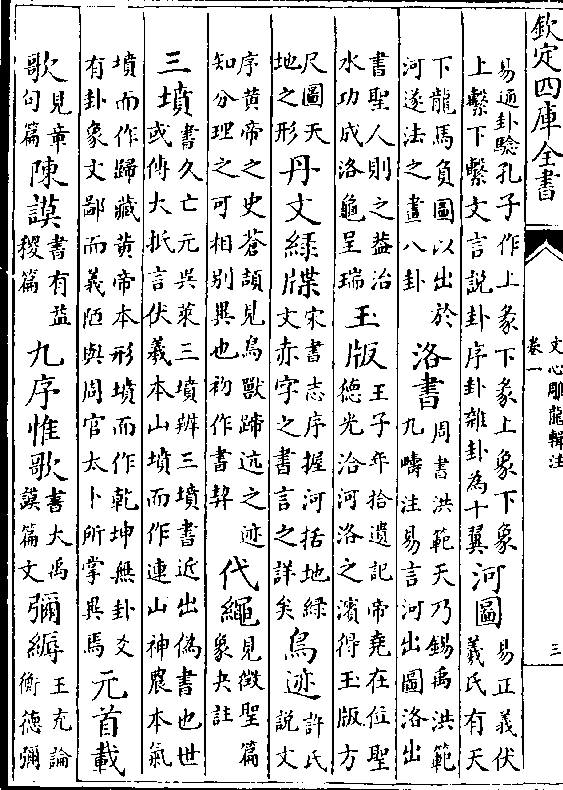 欽定四庫全書
文心雕龍輯注
卷一
三
易通卦驗孔子作上彖下彖上象下象
上繫下繫文言說卦序卦雜卦為十翼
河圖
易正義伏
羲氏有天
下龍馬負圖以出於
河遂法之畫八卦
洛書
周書洪範天乃錫禹洪範
九疇注易言河出圖洛出
書聖人則之蓋治
水功成洛龜呈瑞
玉版
王子年拾遺記帝堯在位聖
德光洽河洛之濱得玉版方
尺圖天
地之形
丹文緑牒
宋書志序握河括地緑
文赤字之書言之詳矣
鳥迹
許氏
說文
序黄帝之史蒼頡見鳥獸蹄迒之迹
知分理之可相别異也初作書契
代繩
見徵聖篇
象夬註
三墳
書久亡元吳萊三墳辨三墳書近出偽書也世
或傳大抵言伏羲本山墳而作連山神農本氣
墳而作歸藏黄帝本形墳而作乾坤無卦爻
有卦象文鄙而義陋與周官太卜所掌異焉
元首載
歌
見章
句篇
陳謨
書有益
稷篇
九序惟歌
書大禹
謨篇文
彌縟
王充論
衡德彌